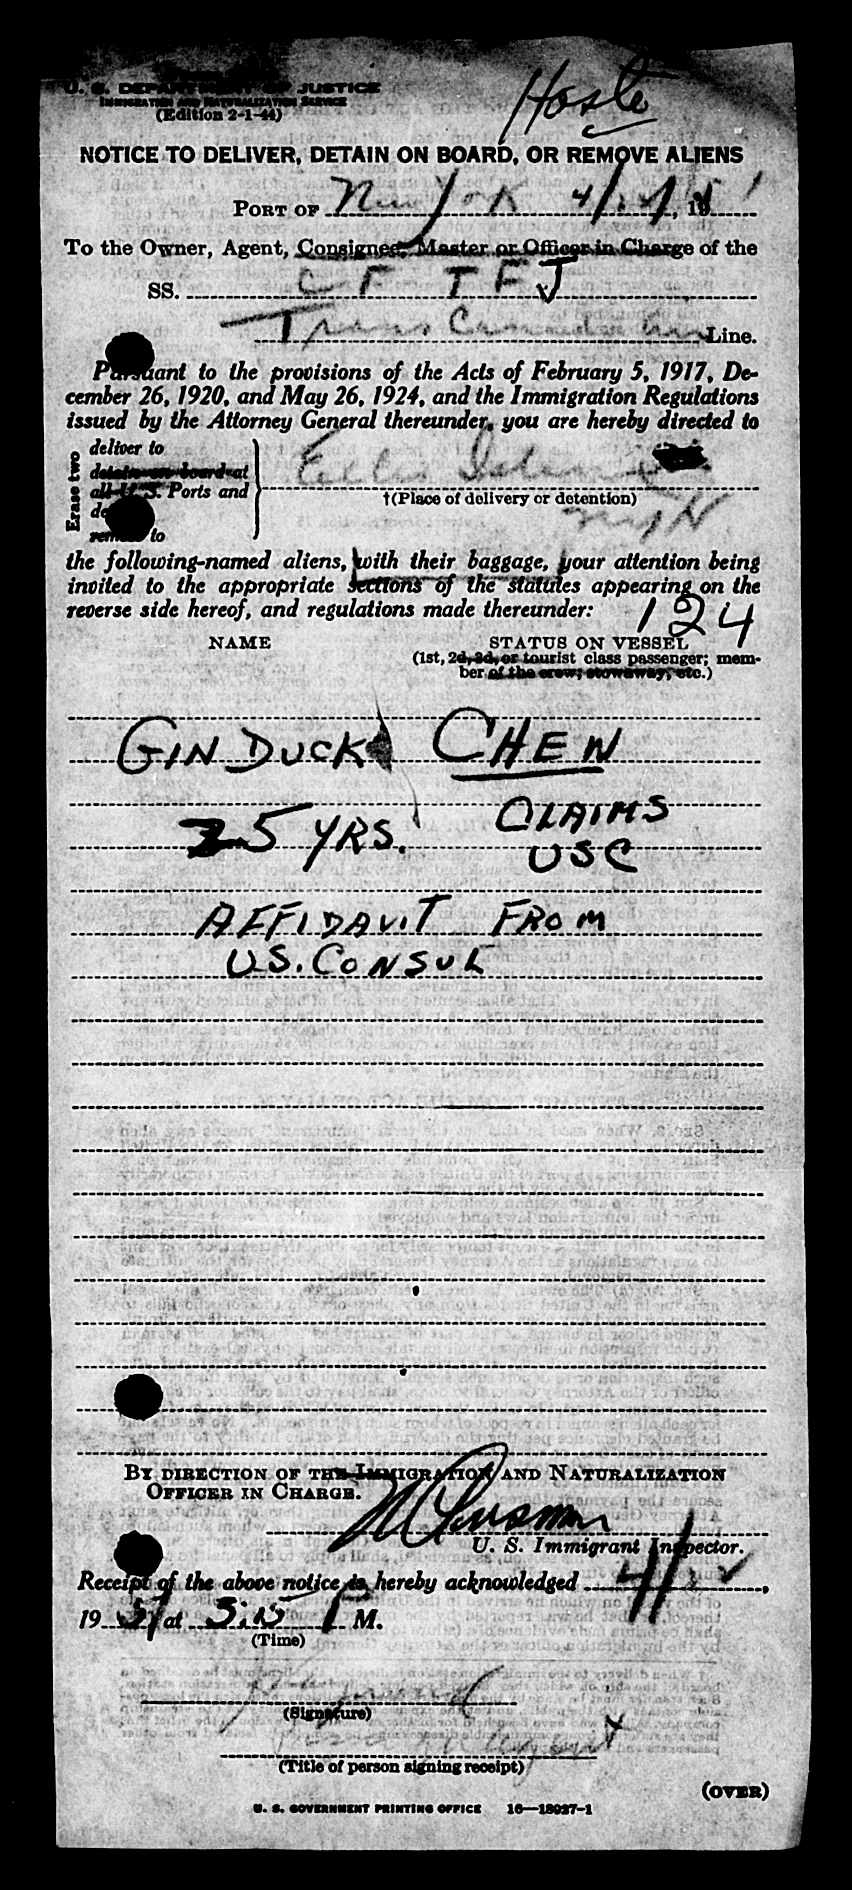 U. S. DEPARTMENT OF JUSTICE
IMMIGRATION AND NATURALIZATION SERVICE
(Edition 2-1-44)
NOTICE TO DELIVER, DETAIN ON BOARD, OR REMOVE ALIENS
PORT OF New York 4/12/, 1951
To the Owner, Agent, Consignee, Master or Officer in Charge of the
SS. CF TFJ
Trans Canada Line.
Pursuant to the provisions of the Acts of February 5, 1917, De-
cember 26, 1920, and May 26, 1924, and the Immigration Regulations
issued by the Attorney General thereunder, you are hereby directed to
Erase two
deliver to
detain on board at
all U. S. Ports and
remove to
Ellis Island
†(Place of delivery or detention)
NYH
the following-named aliens, with their baggage, your attention being
invited to the appropriate sections of the statutes appearing on the
reverse side hereof, and regulations made thereunder:
124
NAME STATUS ON VESSEL
(1st, 2d, 3d, or tourist class passenger; mem-
ber of the crew; stowaway, etc.)
GIN DUCK CHEW
25 YRS. CLAIMS
USC
AFFIDAVIT FROM
U.S. CONSUL
BY DIRECTION OF THE IMMIGRATION AND NATURALIZATION
OFFICER IN CHARGE.
U. S. Immigrant Inspector.
Receipt of the above notice is hereby acknowledged 4/12,
1951 at 5:15 P M.
(Time)
(Signature)
agent
(Title of person signing receipt)
(OVER)
U. S. GOVERNMENT PRINTING OFFICE 16—18027-1